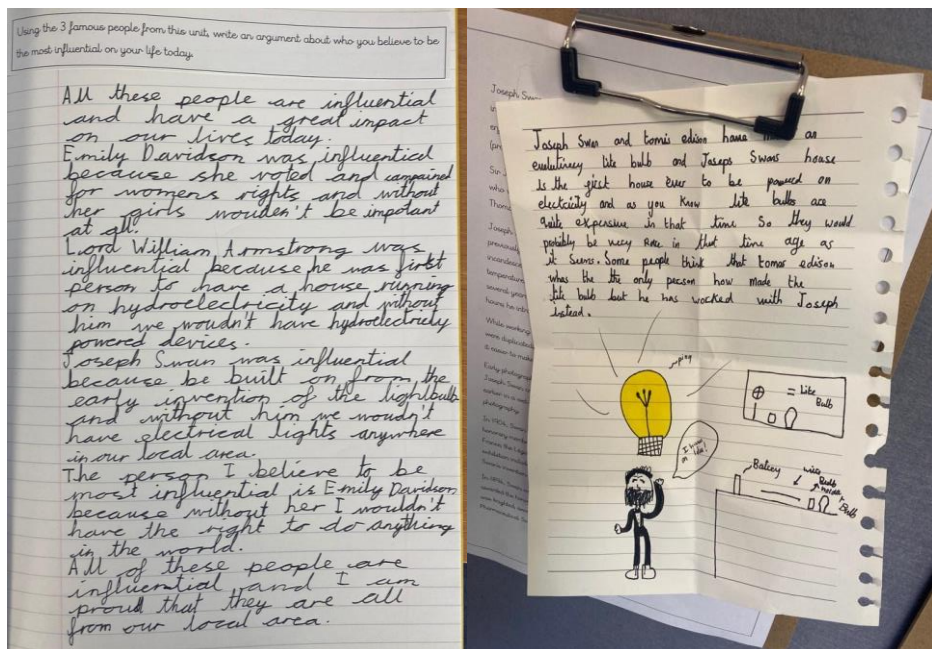 Using the 3 famous people from this unit, write an argument about who you believe to be
the most influential on your life today.
All these people are influential
and have a great impact
on our lives today.
Emily Davidson was influential
because she voted and campained
for womens rights and without
her girls wouden't be impotant
at all.
Lord William Armstrong was
influential because he was first
person to have a house running
on hydroelectricity and without
him we woudn't have hydroelectricity
powered devices.
Joseph Swan was influential
because be built on from the
early invention of the lightbulb
and without him we woudn't
have electrical lights anywhere
in our local area.
The person I believe to be
most influential is Emily Davidson
because without her I wouldn't
have the right to do anything
in the world.
All of these people are
influential and I am
proud that they are all
from our local area.
Joseph Swan and tomis edison have an
evulutinery lite bulb and Joseps Swans house
Is the first house ever to be powered on
electricity and as you know lite bulbs are
quite expensive in that time So they would
probibly be very Rare in that time age as
it Seems. Some people think that tomas edison
whas the the only person how made the
lite bulb but he has worked with Joseph
Instead.
ping
= Lite
Bulb
Battey
wire
Bulb
Bulb
Joseph Swan
(pr
Sir
who
Thom
Joseph
previously
incandesc
temperature
several years
hours he intr
While working
were duplicated
Early photograph
photography